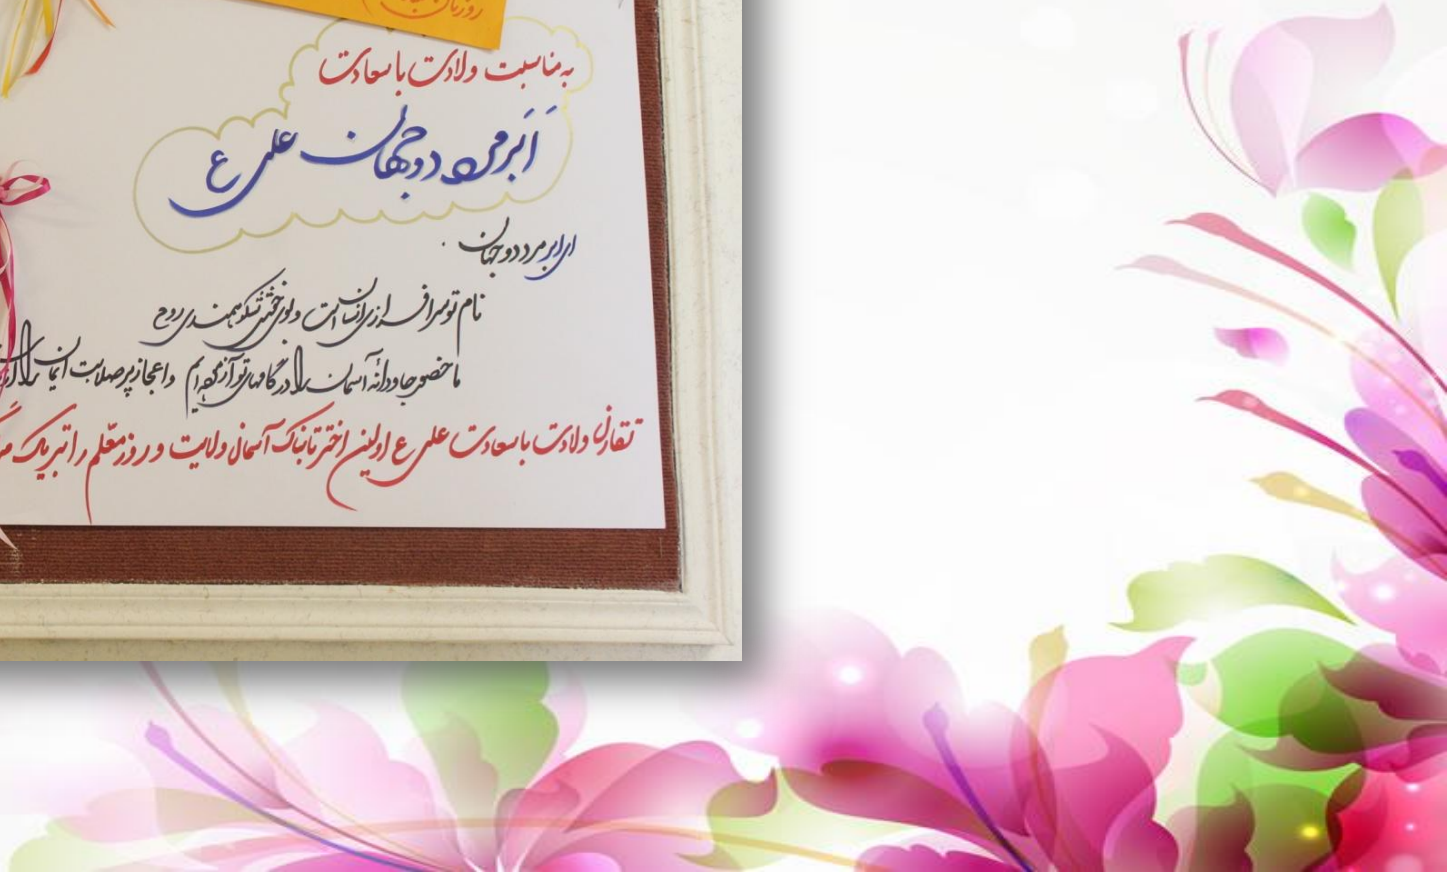 به مناسبت ولادت با سعادت
اَبَرمرد دو جهان علی ع
ای ابر مرد دو جهان
نام تو سرافرازی انسان است و لوی شکوهمندی روح
ما حضور جاودانه آسمان را در گامهای تو آزموده ایم و اعجاز پر صلابت ایمان را
تقارن ولادت با سعادت علی ع اولین اختر تابناک آسمان ولایت و روز معلم را تبریک